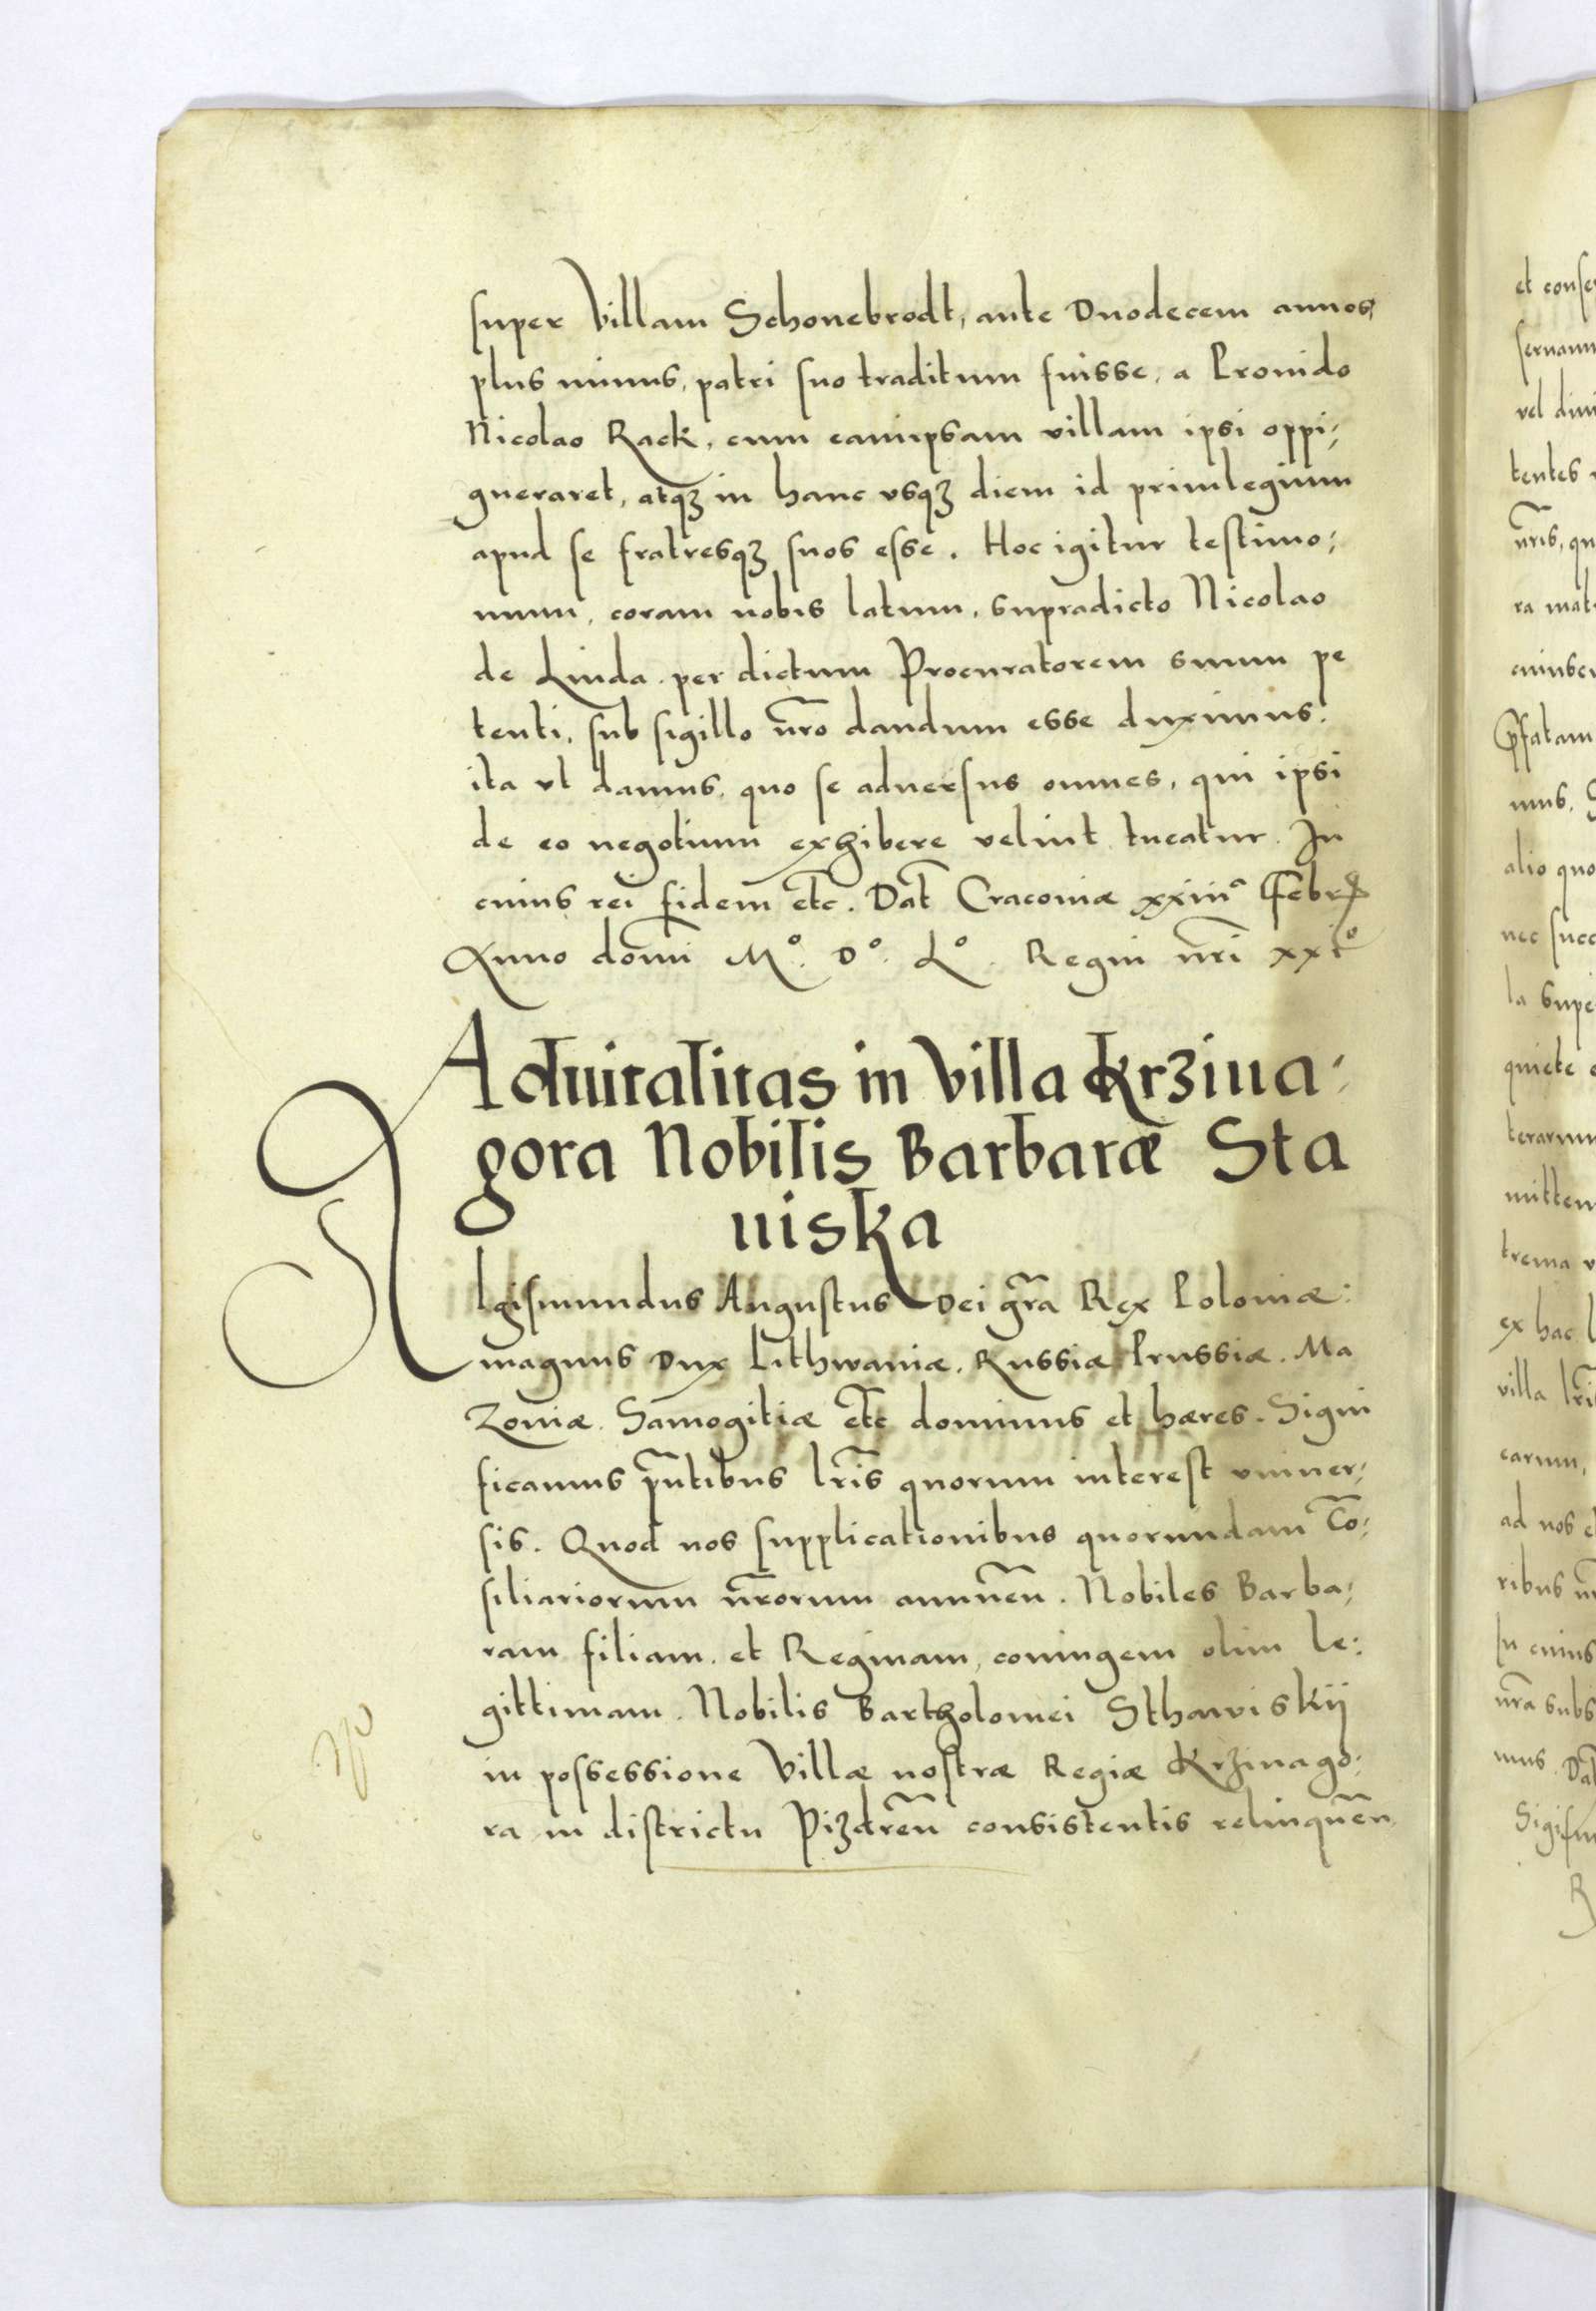 super Villam Schonebrodt, ante Duodecem annos,
plus minus, patri suo traditum fuisse, a Provido
Nicolao Rack, cum eamipsam villam ipsi oppi,
gneraret, atqꝫ in hanc vsqꝫ diem id privilegium
apud se fratresqꝫ suos esse. Hoc igitur testimo,
nium, coram nobis latum, supradicto Nicolao
de Linda per dictum Procuratorem suum pe
tenti, sub sigillo nr̃o dandum esse duximus.
ita vt damus, quo se aduersus omnes, qui ipsi
de eo negotium exhibere velint tueatur. In
cuius rei fidem etc. Dat̃ Cracouiæ xxiiii° Febr
Anno domi M°. D°. L°. Regni nr̃i xxi°
Aduitalitas in Villa Krziua,
gora Nobilis Barbaræ Sta
uiska
Igismundus Augustus Dei gr̃a Rex Poloniæ:
magnus Dux Lithwaniæ. Russiæ Prussiæ. Ma
Zouiæ. Samogitiæ etc̃ dominus et hæres. Signi
ficamus pñtibus lr̃is quorum interest vniuer,
sis. Quod nos supplicationibus quorundam Cõ,
siliariorum nr̃orum annueñ. Nobiles Barba,
ram filiam et Reginam, coniugem olim le,
gittimam. Nobilis Bartholomei Sthawiskij
in possessione Villæ nostræ Regiæ Krziuago,
ra in districtu Pizdreñ consistentis relinqueñ
et conse
seruam
vel dimi
tentes
nr̃is, qu
ra mat
cuiusc
p̃fatam
mus. S
alio quo
nec succ
la supe
quiete
terarum
mitten
trema v
ex hac
villa lr̃i
earum,
ad nos
ribus
In cuius
nr̃a subs
mus. Dat̃
Sigism
R